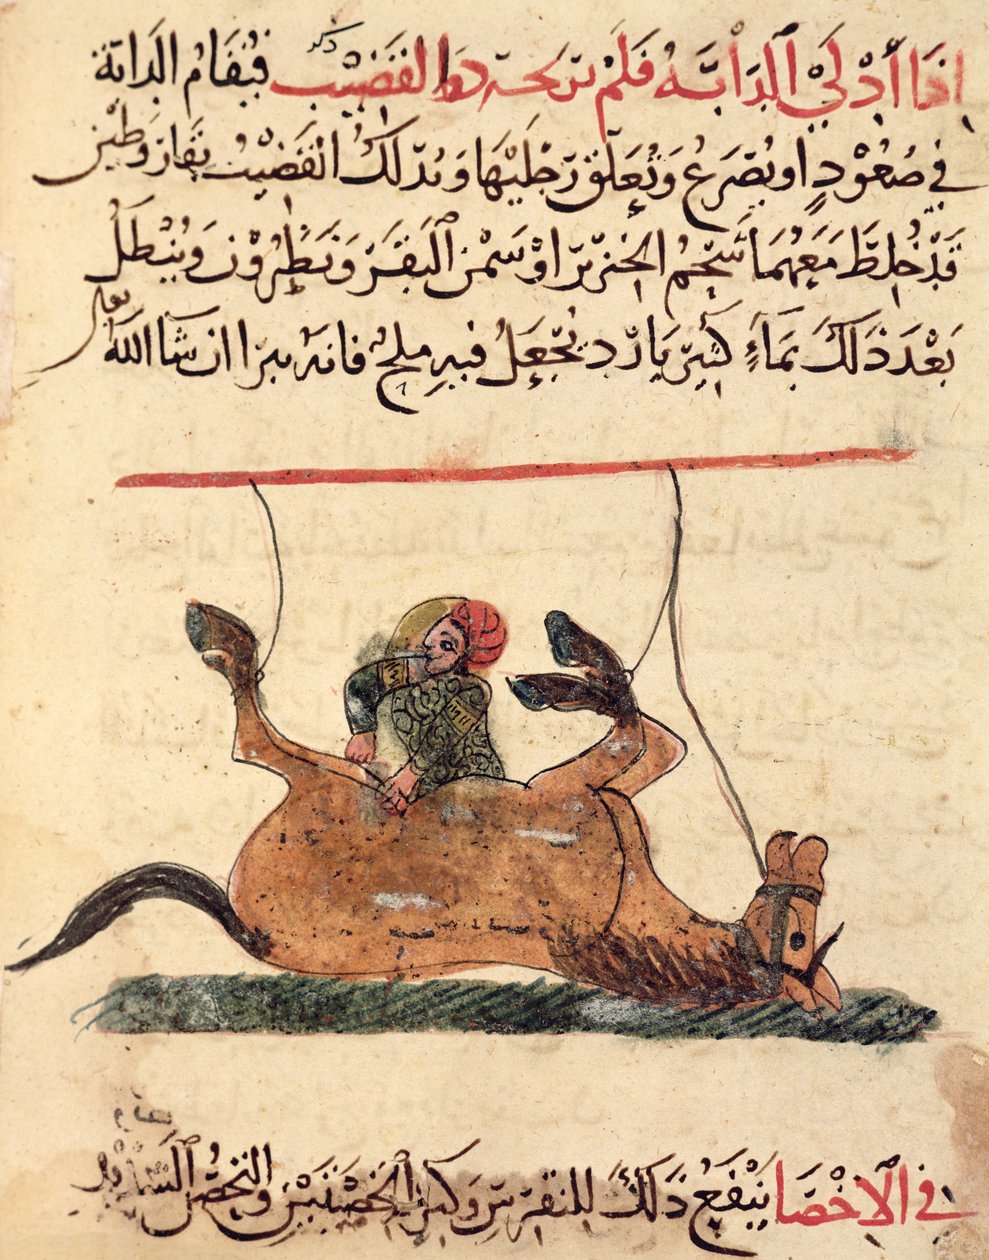 اِذَا أَدْلَى الدَابَّةُ فَلَمْ ترىحه دوا القَضِيْب فيُقَامُ الدَابَة
ذكر
في صُعُوْدٍ او يُصْرَعُ وَتُعَلَق رَجْلَيْهَا وَيُدْلَكُ القَضِيْبُ بِقَارٍ وَطِيْن
قَدْ خُلِطَ مَعَهُمَا شَحْمُ الخنزير اوْ سَمْن البَقَرِ وَنَطْرُوْن وَيُنْطَلُ
بَعْدَ ذَلكَ بمَاءٍ كَثِيْرٍ بَارْدٍ يُجْعَلُ فيهِ ملح فانه يبرا ان شَآ اللهُ تعالى
في الاخْصَا يَنْفَعُ ذَلكَ للنقرس وكبر الخصيتين